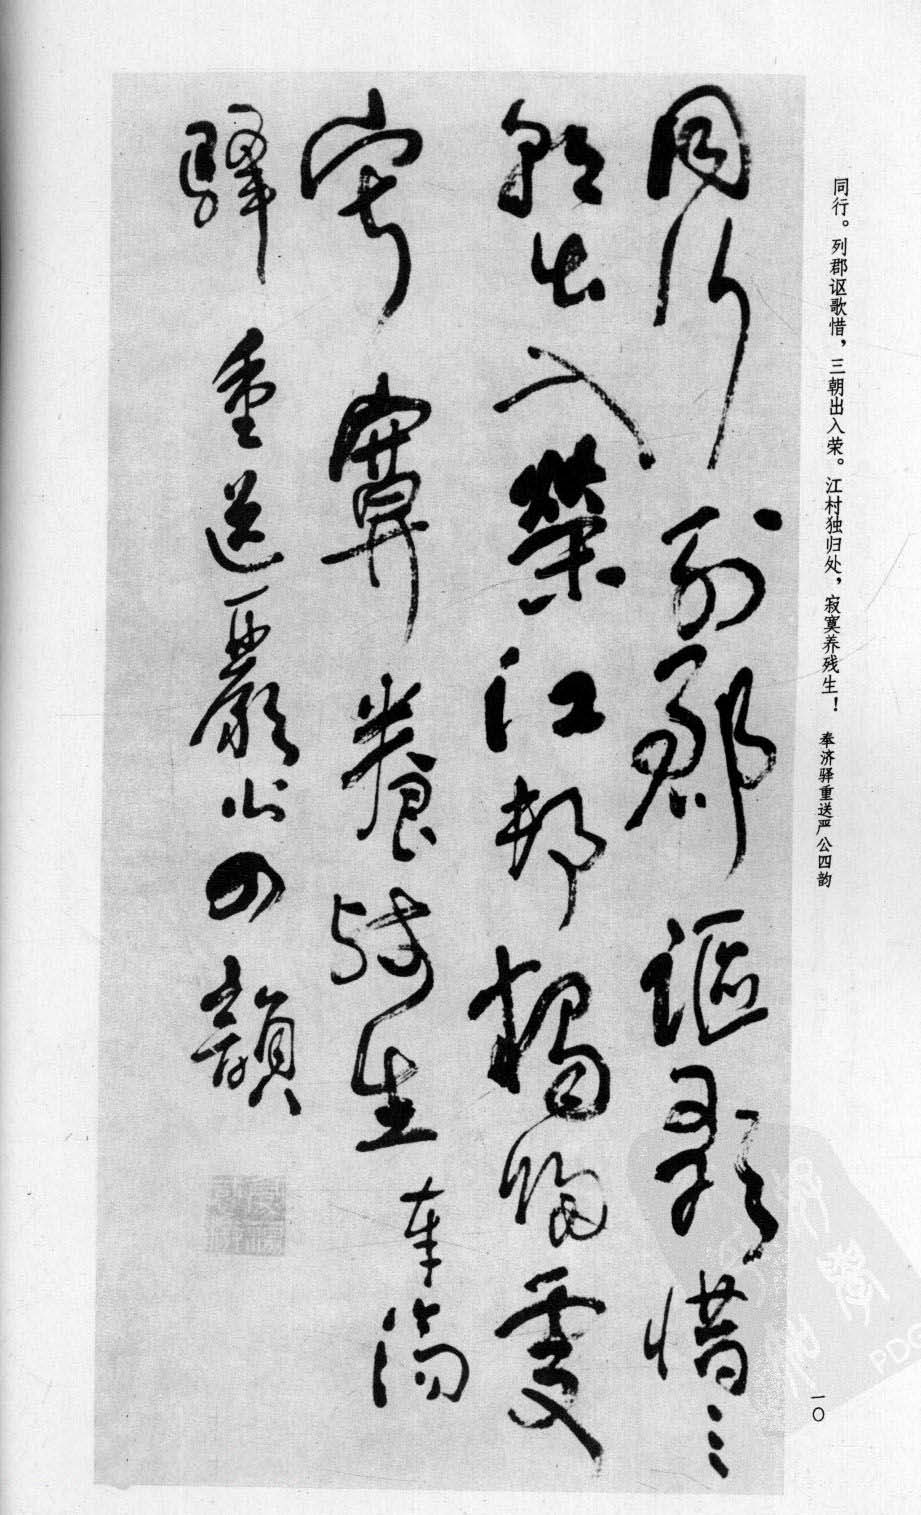 同行。列郡讴歌惜，三朝出入荣。江村独归处，寂寞养残生！ 奉济驿重送严公四韵
同行列郡謳歌惜三
朝出入榮江村獨歸處
寂寞養殘生奉濟
驛重送嚴公四韻
一〇
PDG